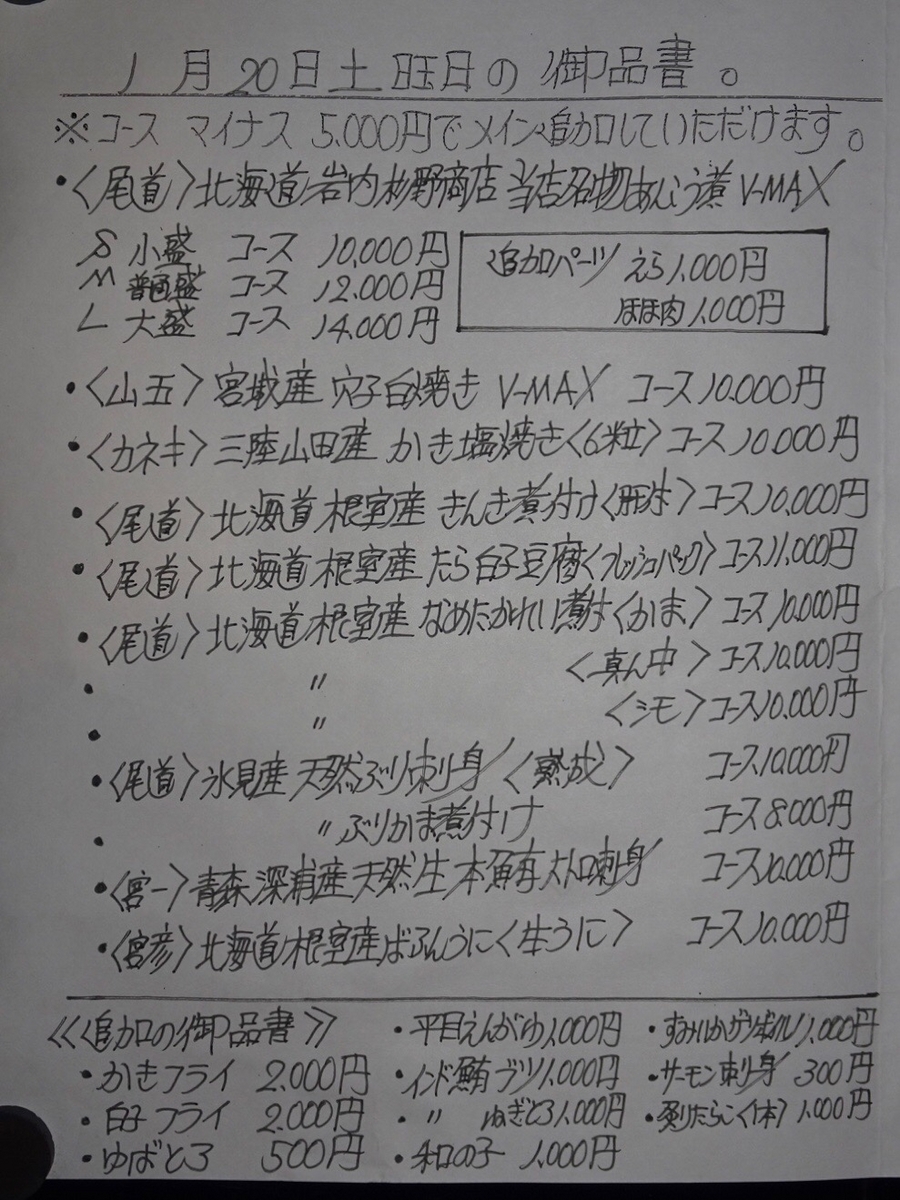 1月20日土曜日の御品書。
※コース マイナス 5.000円でメイン追加していただけます。
・〈尾道〉北海道岩内杉野商店 当店名物あんこう煮 V-MAX
S 小盛 コース 10,000円
M 普通盛 コース 12.000円
L 大盛 コース 14.000円
追加パーツ えら1,000円
ほほ肉 1,000円
・〈山五〉宮城産 穴子白焼き V-MAX コース10.000円
・〈カネキ〉三陸山田産 かき塩焼き〈6粒〉コース10.000円
・〈尾道〉北海道根室産 きんき煮付け〈肝付〉コース10.000円
・〈尾道〉北海道根室産 たら白子豆腐〈フレッシュパック〉コース11.000円
・〈尾道〉北海道根室産 なめたかれい煮付〈かま〉コース10.000円
・ 〃 〈真ん中〉コース10.000円
・ 〃 〈シモ〉コース10.000円
・〈尾道〉氷見産 天然ぶり刺り身〈熟成〉 コース10.000円
・ 〃 ぶりかま煮付け コース8.000円
・〈宮一〉青森深浦産天然生本鮪大トロ刺身 コース10.000円
・〈宮彦〉北海道根室産ばふんうに〈生うに〉 コース10.000円
≪追加の御品書≫
・かきフライ 2.000円
・白子フライ 2.000円
・ゆばとろ 500円
・平目えんがわ1,000円
・インド鮪ブツ1,000円
・ 〃 ねぎとろ1,000円
・和の子 1,000円
・すみいかゲソボイル1,000円
・サーモン刺り身 300円
・炙りたらこ〈1本〉1,000円